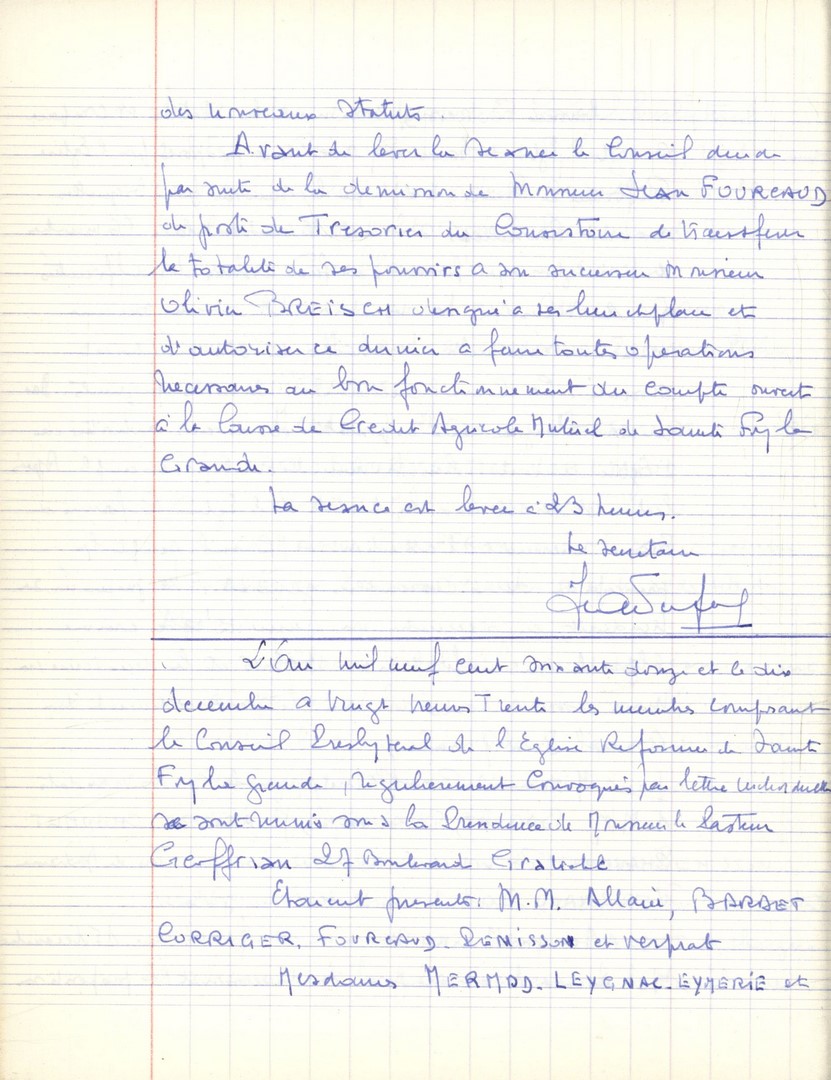 des nouveaux statuts.
Avant de lever la seance le Conseil decide
par suite de la demission de Monsieur Jean FOURCAUD
du poste de Tresorier du Consistoire de transferer
la totalité de ses pouvoirs a son successeur Monsieur
Olivier BREISCH designé a ses lieu et place et
d'autoriser ce dernier a faire toutes operations
necessaires au bon fonctionnement du compte ouvert
à la Caisse de Credit Agricole Mutuel de Sainte Foy la
Grande.
La seance est levee à 23 heures.
Le secretaire
L'An mil neuf cent soixante douze et le dix
decembre a vingt heures Trente les membres composant
le Conseil Presbyteral de l'Eglise Reformee de Sainte
Foy la grande, regulierement Convoqués par lettre individuelle
se sont reunis sous la Presidence de Monsieur le Pasteur
Geoffrian 27 Boulevard Gratiolet
Etaient presents: M.M. Allain, BARBET
CORRIGER, FOURCAUD. REMISSON et Verprat
Mesdames MERMOD. LEYGNAC. EYMERIE et